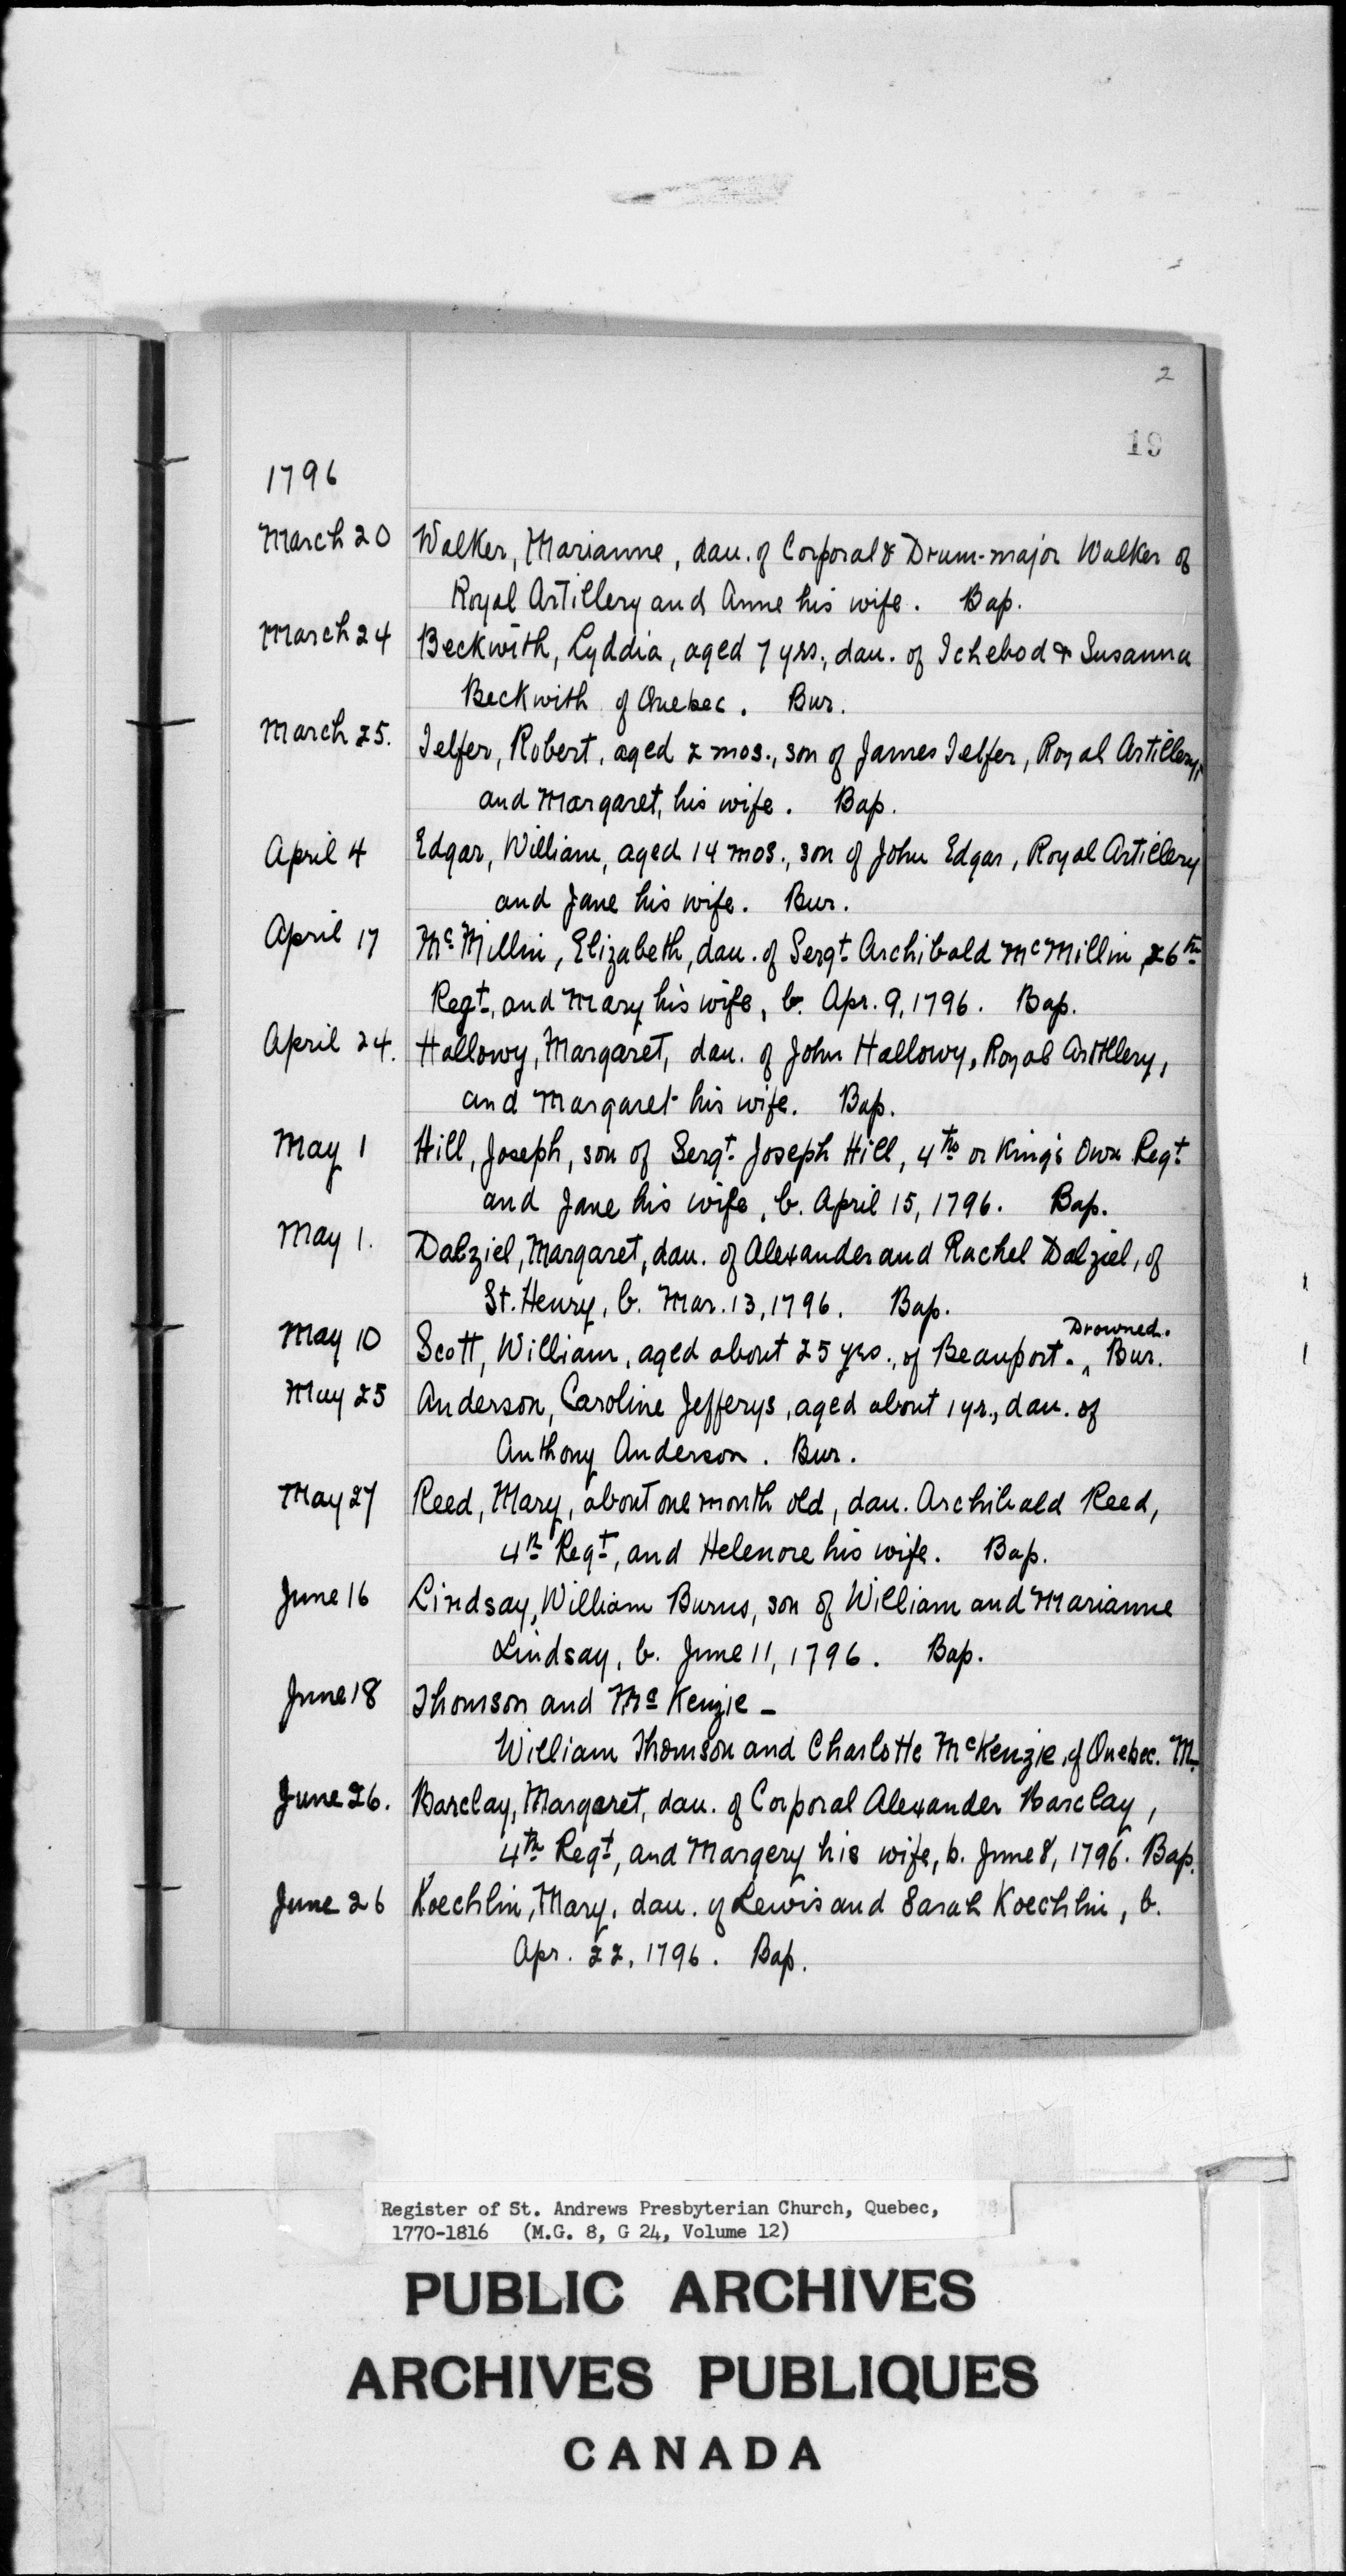 2
19
1796
March 20 Walker, Marianne, dau. of Corporal & Drum-major Walker of
Royal Artillery and Anne his wife. Bap.
March 24 Beckwith, Lyddia, aged 7 yrs., dau. of Ichebod & Susanna
Beckwith of Quebec. Bur.
March 25. Telfer, Robert, aged 2 mos., son of James Telfer, Royal Artillery,
and Margaret, his wife. Bap.
April 4 Edgar, William, aged 14 mos., son of John Edgar, Royal Artillery
and Jane his wife. Bur.
April 17 McMillin, Elizabeth, dau. of Sergt. Archibald McMillin, 26th
Regt., and Mary his wife, b. Apr. 9, 1796. Bap.
April 24. Hallowy, Margaret, dau. of John Hallowy, Royal Artillery,
and Margaret his wife. Bap.
May 1 Hill, Joseph, son of Sergt. Joseph Hill, 4th or King's Own Regt.
and Jane his wife, b. April 15, 1796. Bap.
May 1. Dalziel, Margaret, dau. of Alexander and Rachel Dalziel, of
St. Henry, b. Mar. 13, 1796. Bap.
May 10 Scott, William, aged about 25 yrs., of Beauport. Drowned. Bur.
May 25 Anderson, Caroline Jefferys, aged about 1 yr., dau. of
Anthony Anderson. Bur.
May 27 Reed, Mary, about one month old, dau. Archibald Reed,
4th Regt, and Helenore his wife. Bap.
June 16 Lindsay, William Burns, son of William and Marianne
Lindsay, b. June 11, 1796. Bap.
June 18 Thomson and McKenzie -
William Thomson and Charlotte McKenzie, of Quebec. M.
June 26. Barclay, Margaret, dau. of Corporal Alexander Barclay,
4th Regt, and Margery his wife, b. June 8, 1796. Bap.
June 26 Koechlin, Mary, dau. of Lewis and Sarah Koechlin, b.
Apr. 22, 1796. Bap.
Register of St. Andrews Presbyterian Church, Quebec,
1770-1816 (M.G. 8, G 24, Volume 12)
PUBLIC ARCHIVES
ARCHIVES PUBLIQUES
CANADA